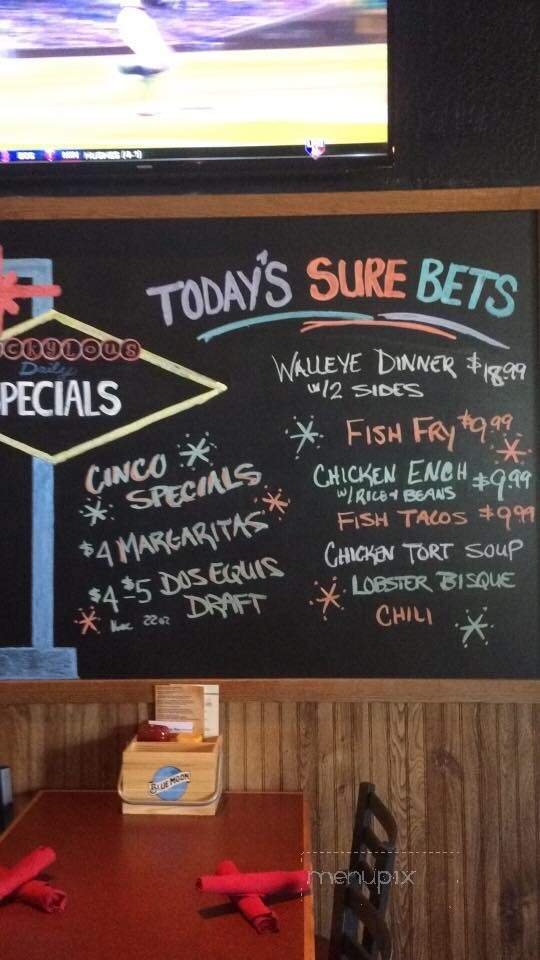 MIN HUGHES (4-1)
TODAY'S SURE BETS
CKYLOUS
Daily
PECIALS
WALLEYE DINNER $18.99
W/2 SIDES
FISH FRY $9.99
CHICKEN ENCH $9.99
W/RICE & BEANS
FISH TACOS $9.99
CHICKEN TORT SOUP
LOBSTER BISQUE
CHILI
CINCO
SPECIALS
$4 MARGARITAS
$4-$5 DOS EQUIS
DRAFT
22oz
BLUE MOON
menupix